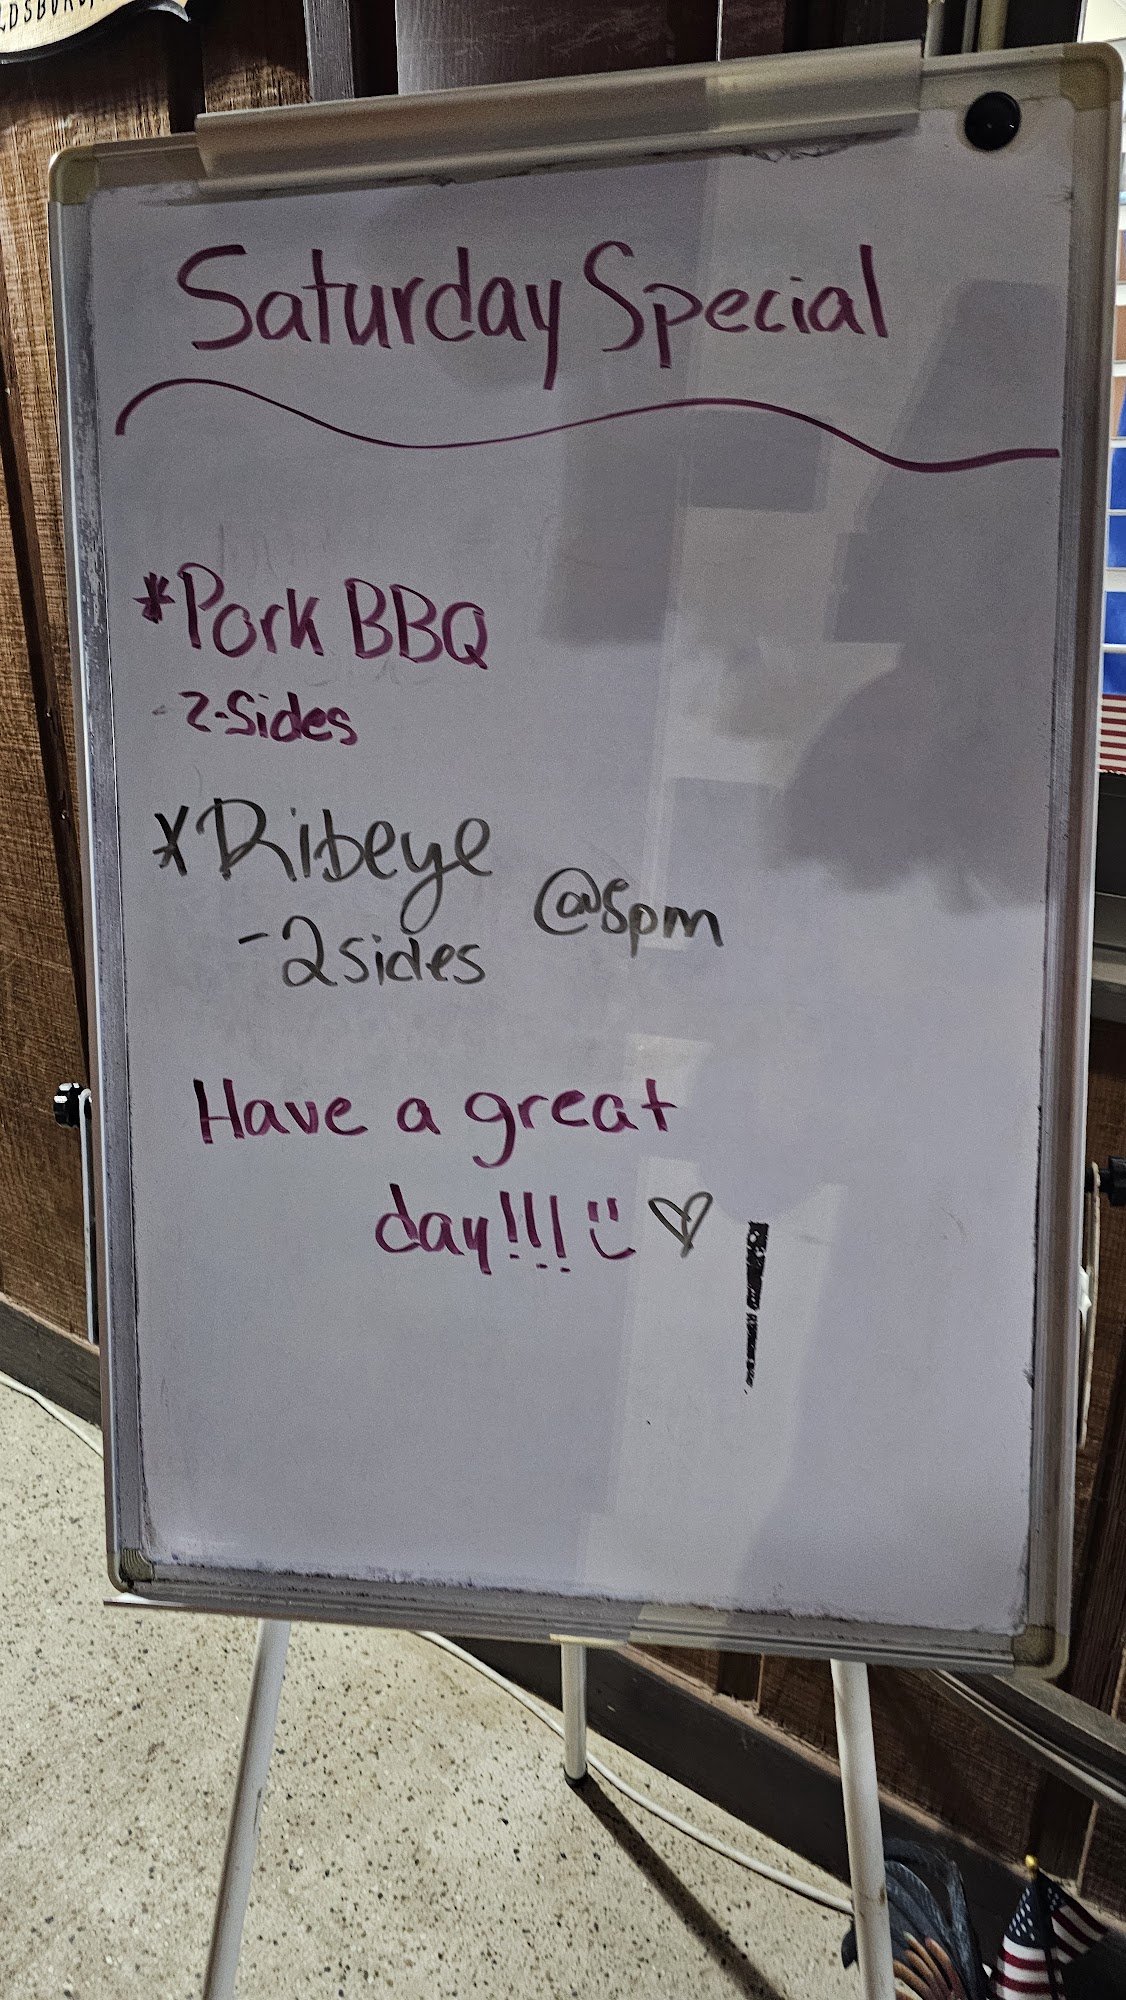 LDSBORO
Saturday Special
*Pork BBQ
- 2-Sides
*Ribeye
@5pm
- 2 sides
Have a great
day!!!